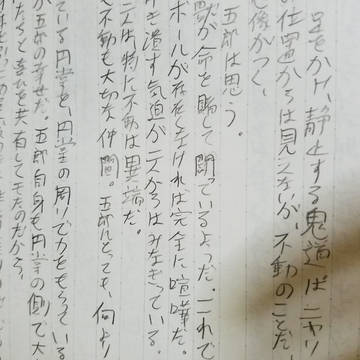 足をかけ、静止する鬼道はニヤリ
の位置からは見えないが、不動のことだ
後がつく、
五郎は思う。
獣が命を賭して闘っているようだ。これで
ボールが存在しなければ完全に喧嘩だ。
き潰す気迫が二人からはみなぎっている。
二人は特に不動は異端だ。
も不動も大切な仲間。五郎にとっても、何より
ている円堂を、円堂の周りで力をもらっている
が五郎の幸せだ。五郎自身も円堂の側で大
たちと喜びを共有してきたのだから。